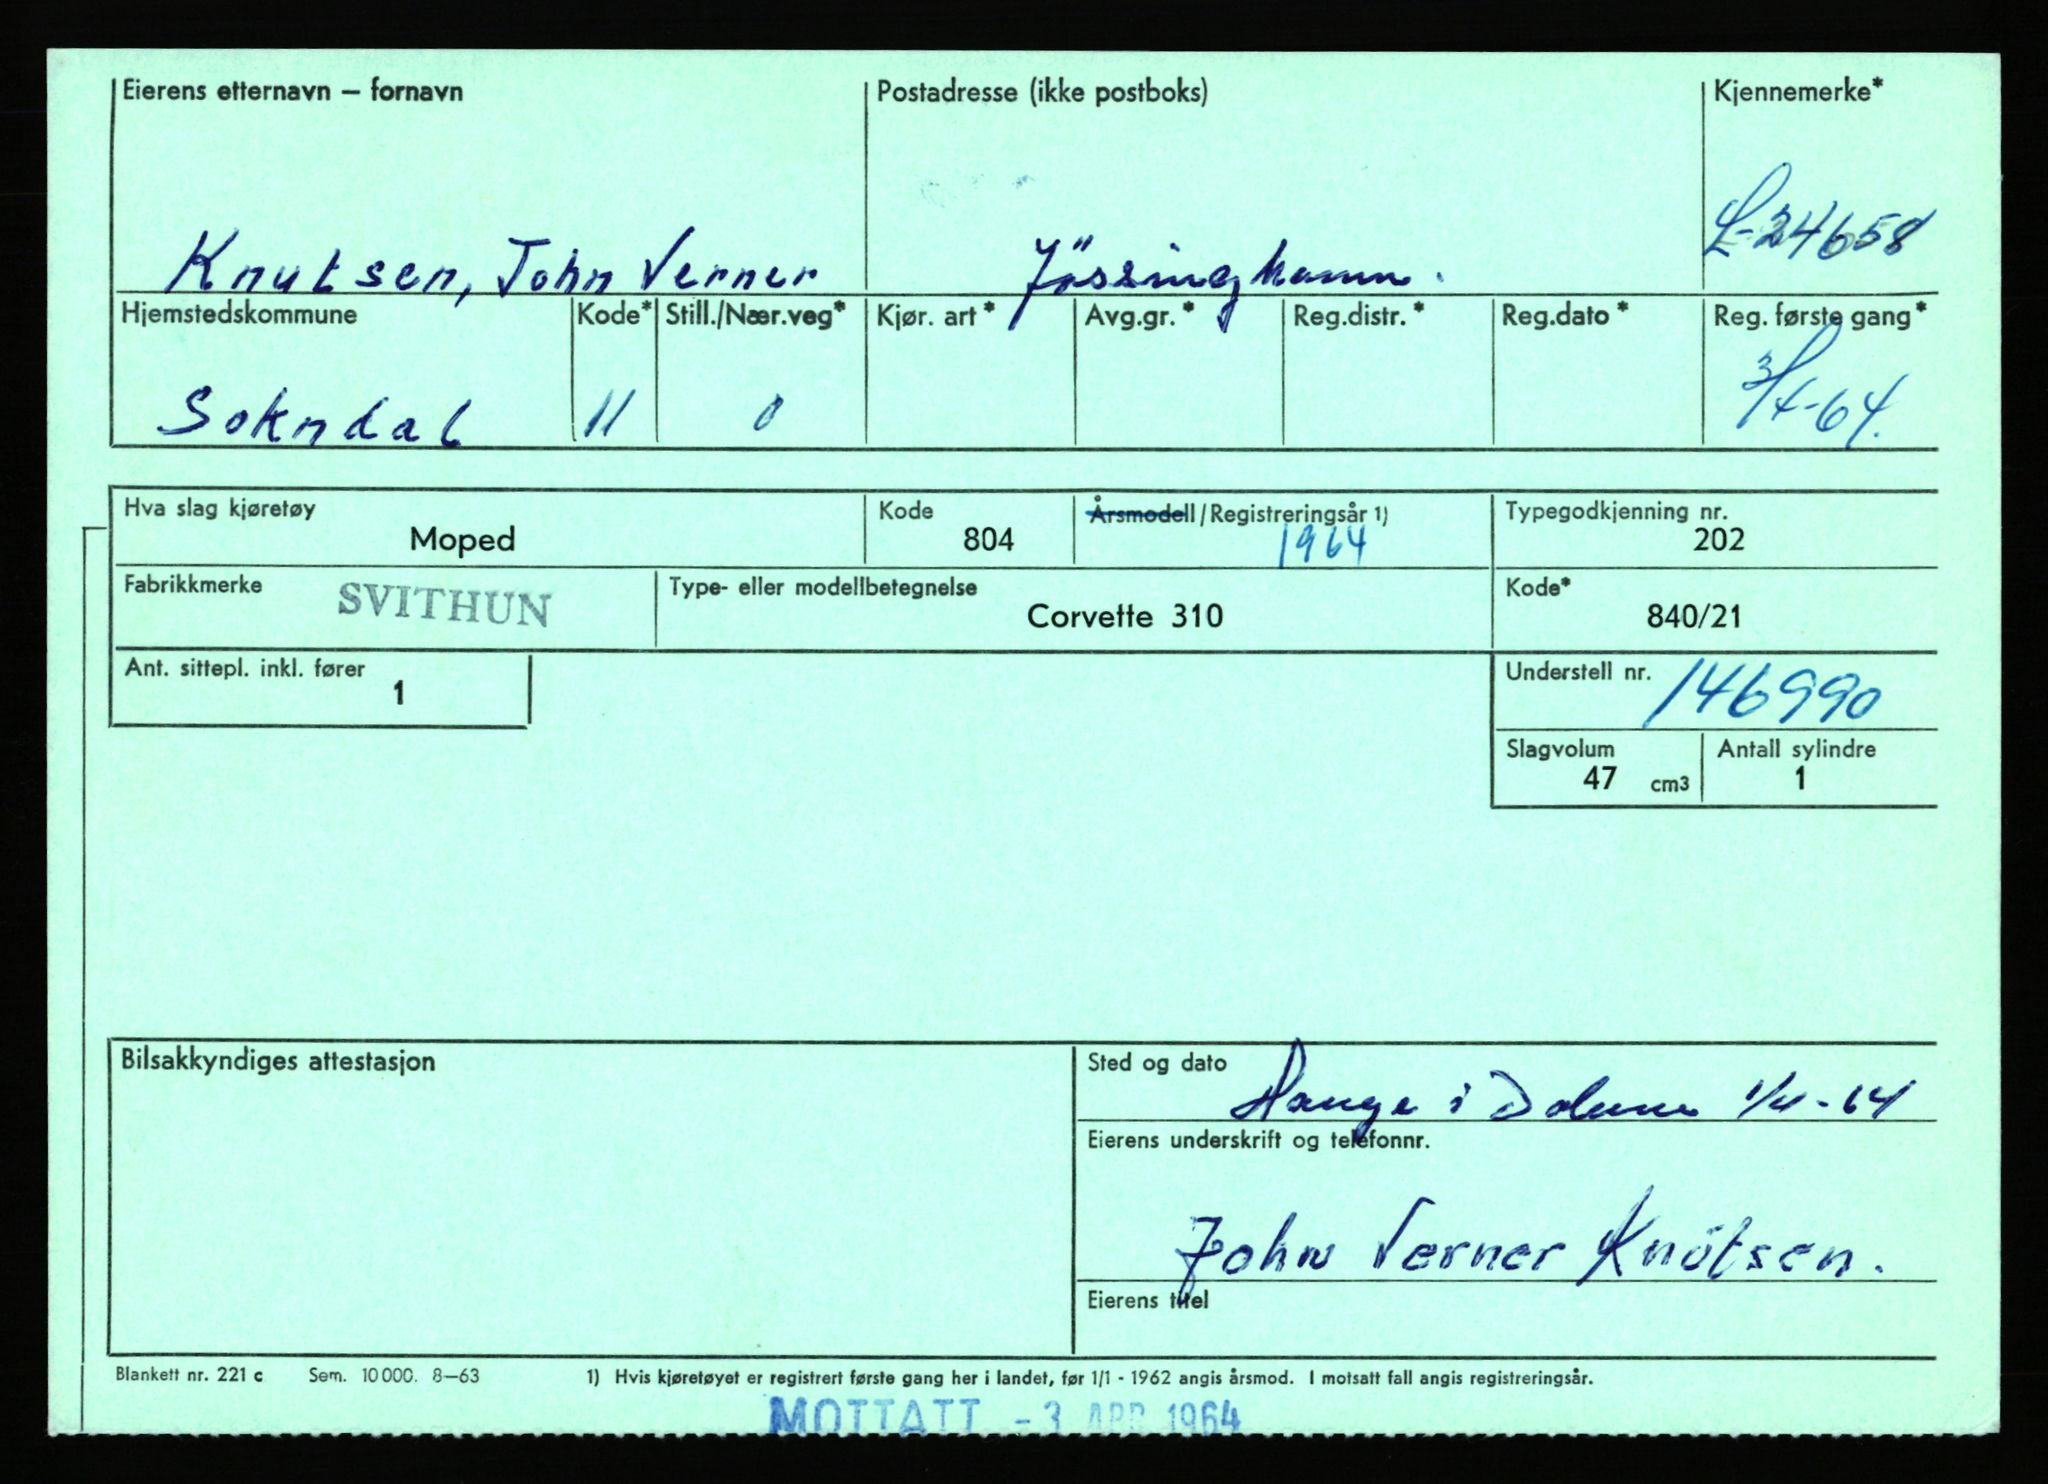 Eierens etternavn — fornavn Postadresse (ikke postboks) Kjennemerke*
Knutsen, John Verner Jössinghamn. L-24658
Hjemstedskommune Kode* Still./Nær.veg* Kjør. art* Avg.gr.* Reg.distr.* Reg.dato* Reg. første gang*
Sokndal 11 0 3/4-64.
Hva slag kjøretøy Kode Årsmodell/Registreringsår 1) Typegodkjenning nr.
Moped 804 1964 202
Fabrikkmerke SVITHUN Type- eller modellbetegnelse Kode*
Corvette 310 840/21
Ant. sittepl. inkl. fører Understell nr.
1 146990
Slagvolum Antall sylindre
47 cm3 1
Bilsakkyndiges attestasjon Sted og dato
Hauge i Dalane 1/4-64
Eierens underskrift og telefonnr.
John Verner Knütsen.
Eierens titel
Blankett nr. 221 c Sem. 10000. 8—63 1) Hvis kjøretøyet er registrert første gang her i landet, før 1/1 - 1962 angis årsmod. I motsatt fall angis registreringsår.
MOTTATT - 3 APR 1964